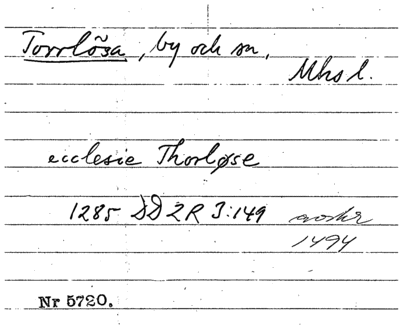 Torrlösa, by och sn,
Mhs l.
ecclesie Thorløse
1285 SD 2 R 3:149 avskr
1494
Nr 5720.